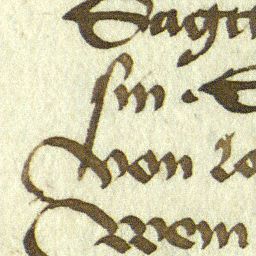 Sagt
sin . S
von lo
wem